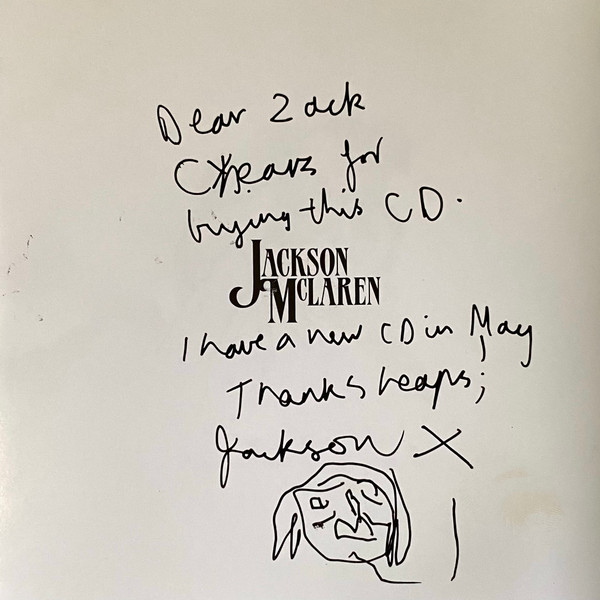 Dear Zack
Cheers for
buying this CD.
JACKSON
MCLAREN
I have a new CD in May
Thanks heaps;
Jackson X